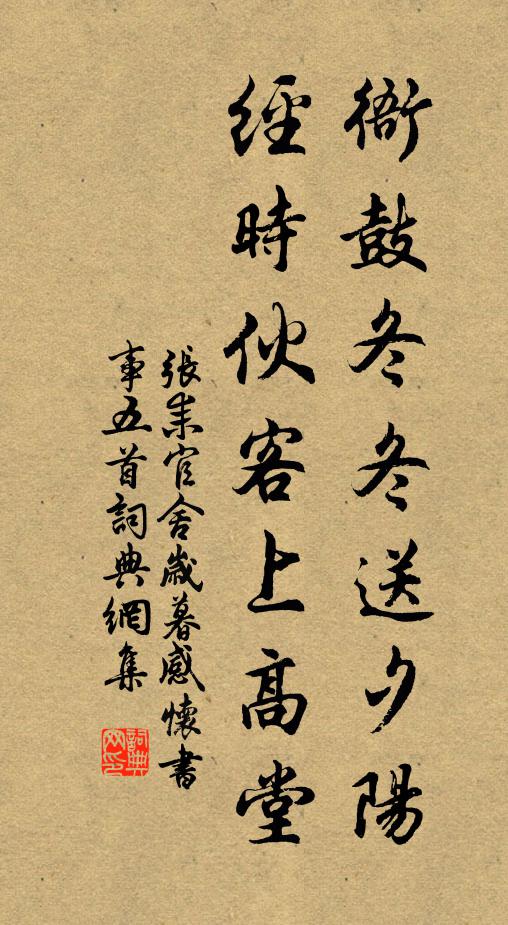 衙鼓冬冬送夕陽
經時伙客上高堂
張耒官舍歲暮感懷書
事五首詞典網集
詞典
网